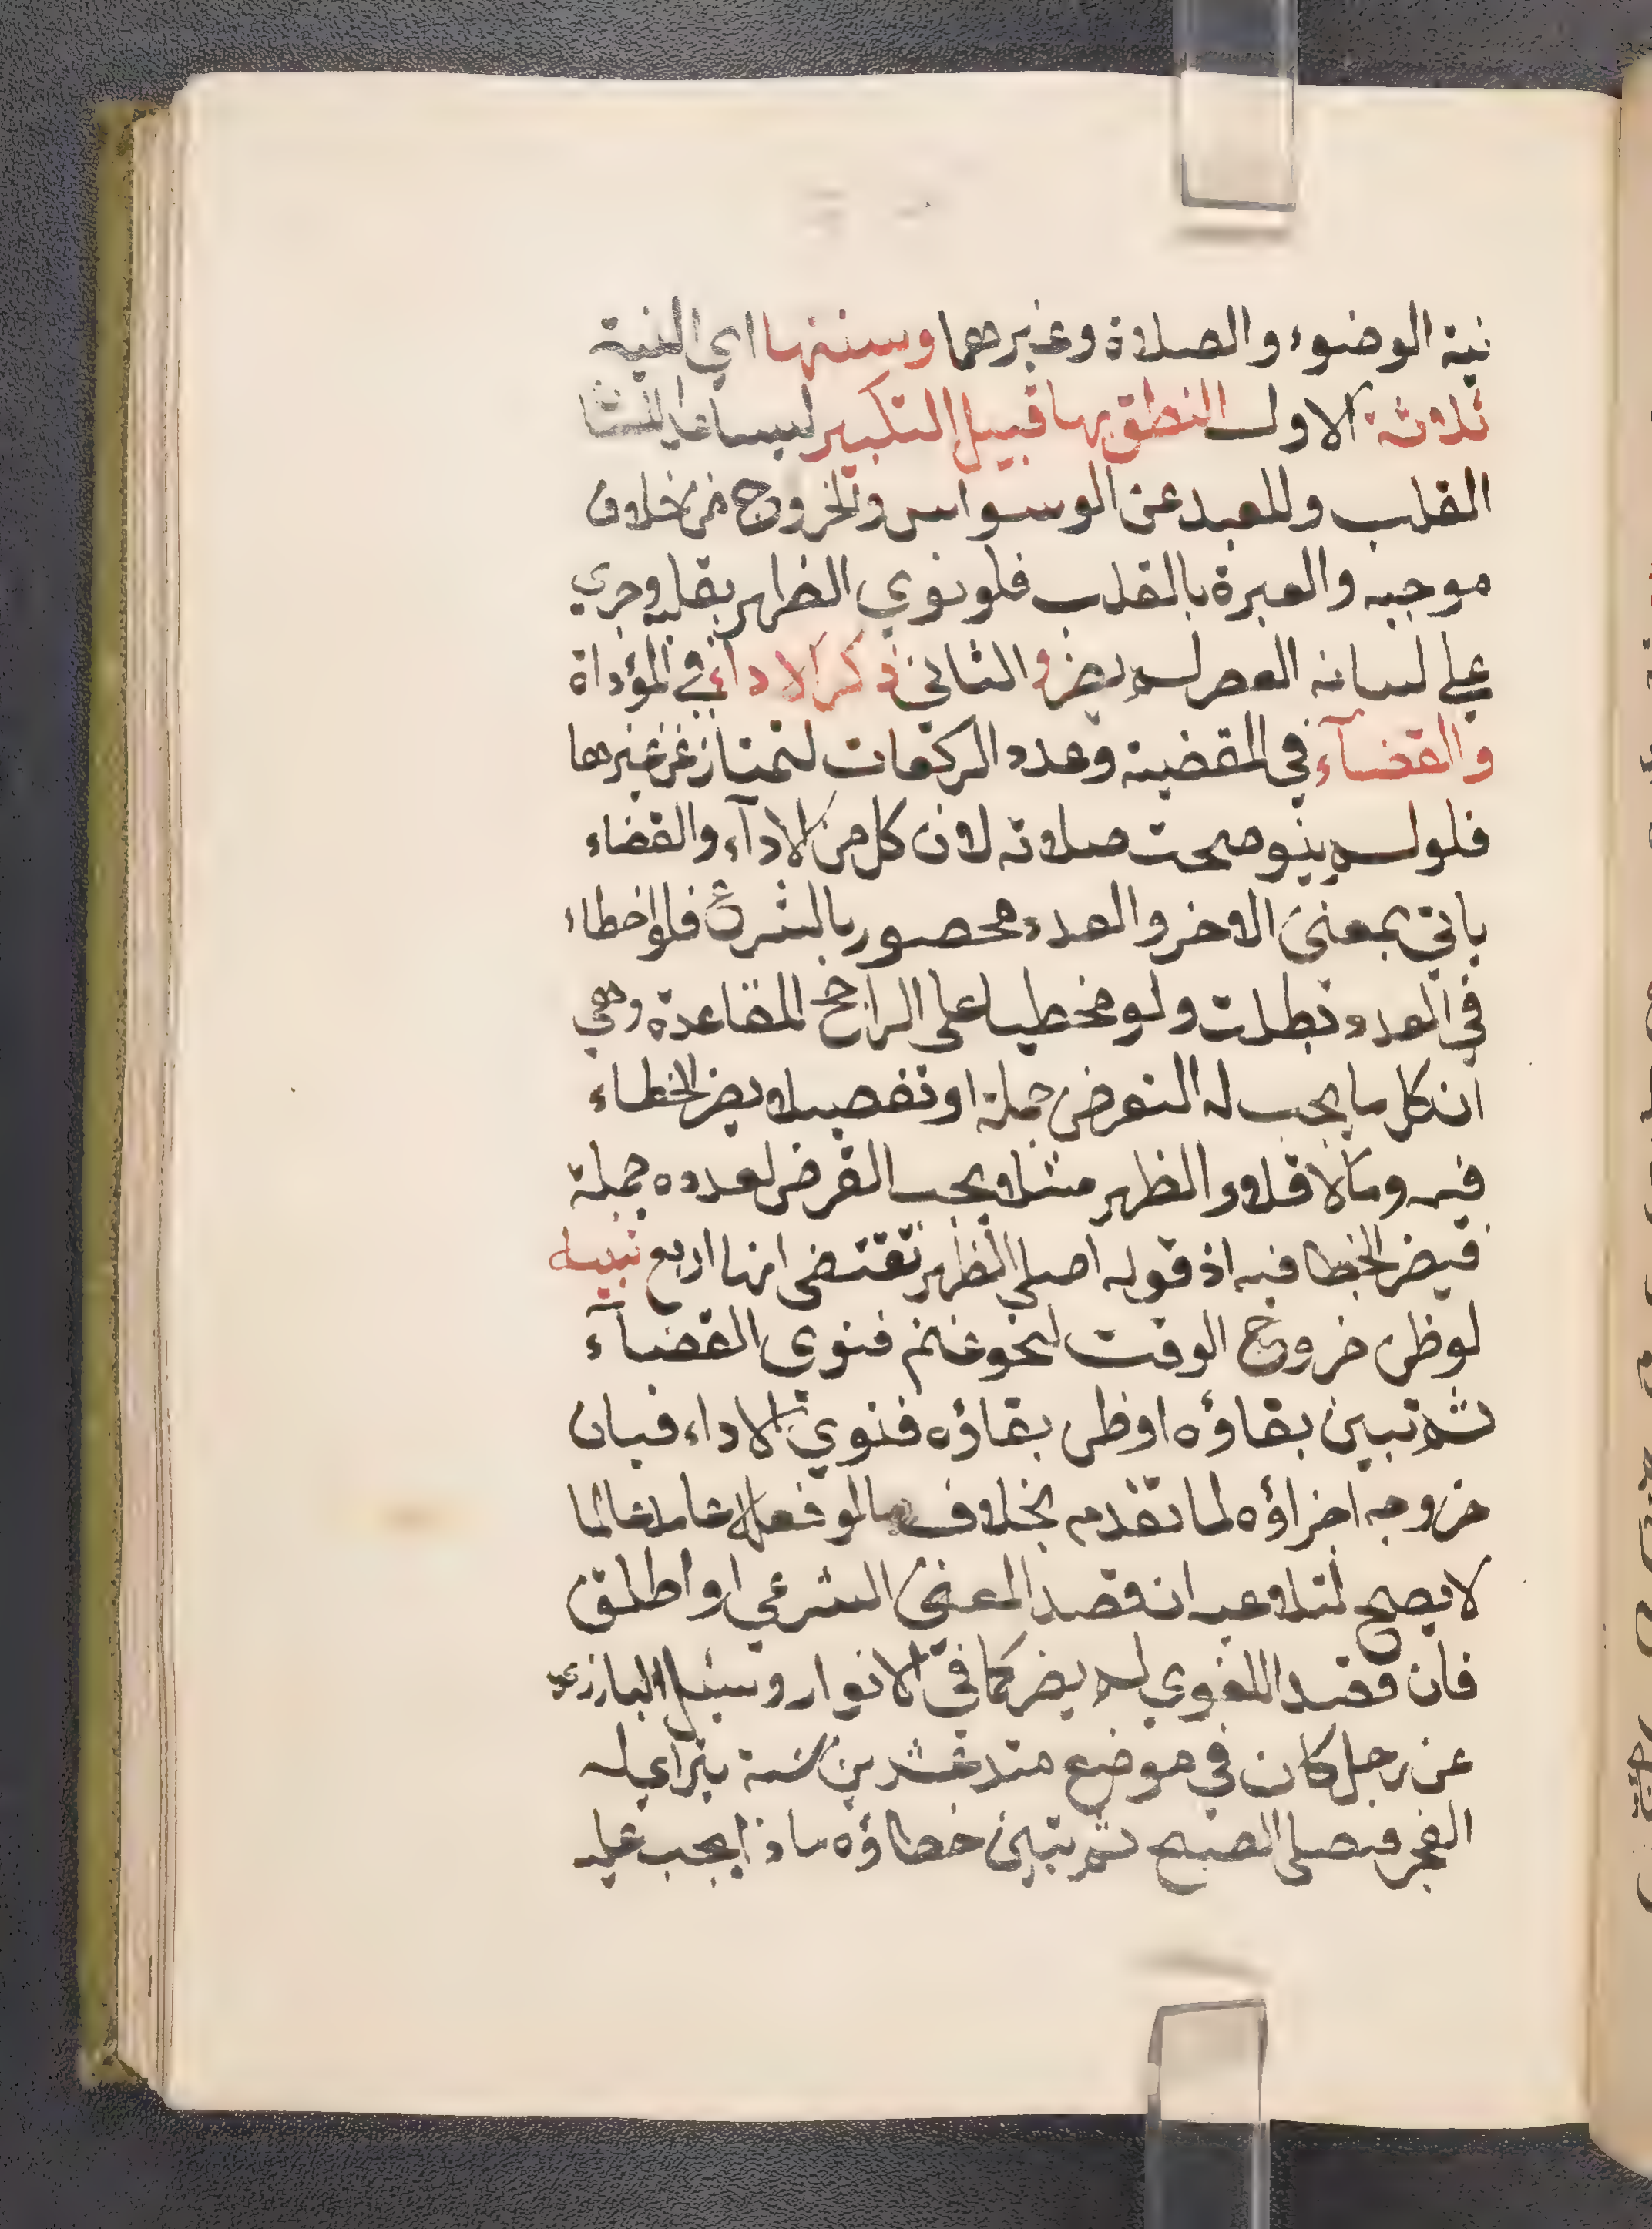 نية الوضوء والصلاة وغيرهما وسننها اي النية
ثلاثة الاول النطق بها قبيل التكبير ليساعد اللسان
القلب وللبعد عن الوسواس وللخروج من خلاف
موجبه والعبرة بالقلب فلو نوي الظهر بقلبه وجري
علي لسانه العصر لم يضر والثاني ذكر الاداء في المؤداة
والقضآء في المقضية وعدد الركعات لتمتاز عن غيرها
فلو لم ينو صحت صلاته لان كل من الادآء والقضاء
ياتي بمعنى الاخر والعدد محصور بالشرع فلو اخطاء
في العدد بطلت ولو مخطيا على الراجح للقاعدة وهي
ان كل ما يجب له التعرض جملة او تفصيلا يضر الخطاء
فيه وما لا فلا والظهر مثلا يجب الفرض لعدده جملة
فيضر الخطا فيه اذ قوله اصلي الظهر تقتضى انها اربع تنبيه
لو ظن خروج الوقت لنحو غنم فنوى القضآء
ثم تبين بقاؤه او ظن بقاؤه فنوي الاداء فبان
خروجه اجزاؤه لما تقدم بخلاف ما لو فعله عامدا عالما
لا يصح لتلاعبه ان قصد المعنى الشرعي او اطلق
فان قصد اللغوي لم يضر كما في الانوار وسئل البازري
عن رجل كان في موضع منذ عشرين سنة يترااي له
الفجر فيصلي الصبح ثم تبين خطاؤه ماذا يجب عليه